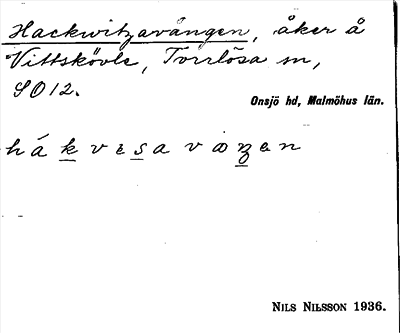 Hackwitzavången, åker å
Vittskövle, Torrlösa sn,
SO 12.
Onsjö hd, Malmöhus län.
NILS NILSSON 1936.